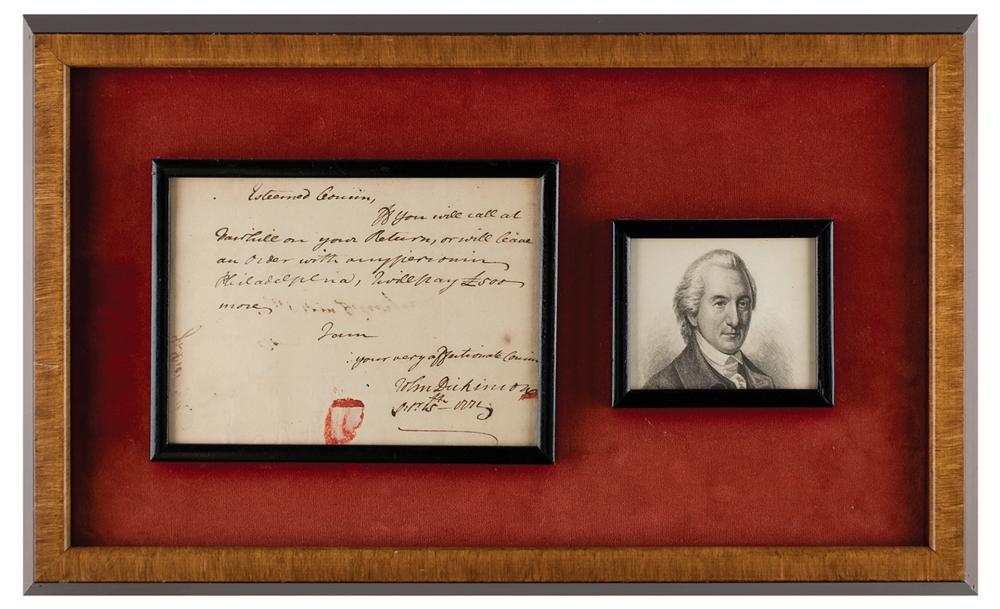 Esteemed Cousin,
If You will call at
Fairhill on your Return, or will leave
an Order with any person in
Philadelphia, I will pay £500
more,
I am
your very affectionate Cousin
John Dickinson